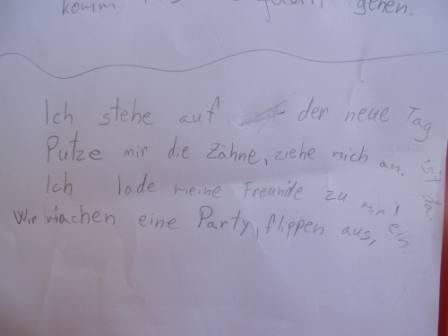 komm gehen.
Ich stehe auf der neue Tag ist da.
Putze mir die Zähne, ziehe mich an.
Ich lade meine Freunde zu mir ein
Wir machen eine Party, flippen aus,